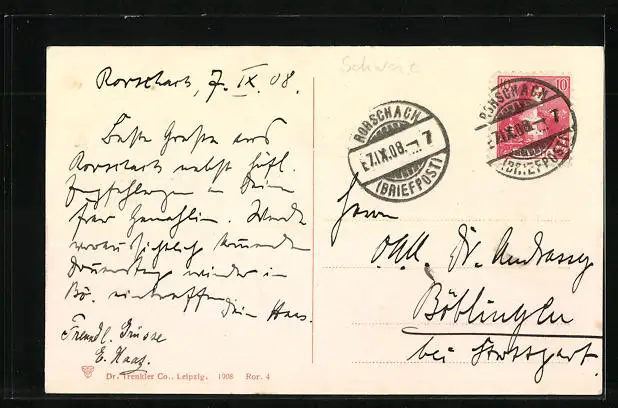 Rorschach, 7. IX. 08.
Beste Grüße aus
Rorschach nebst höfl.
Empfehlungen an Deine
Frau Gemahlin. Werde
voraussichtlich kommenden
Donnerstag wieder in
Bö. eintreffen
Dein Haas.
Freundl. Grüsse
E. Haag.
Dr. Trenkler Co., Leipzig. 1908 Ror. 4
Schweiz
RORSCHACH
7.IX.08.–7
(BRIEFPOST)
10
RORSCHACH
7.IX.08.–7
(BRIEFPOST)
Herrn
Dr. Andrassy
Böblingen
bei Stuttgart.